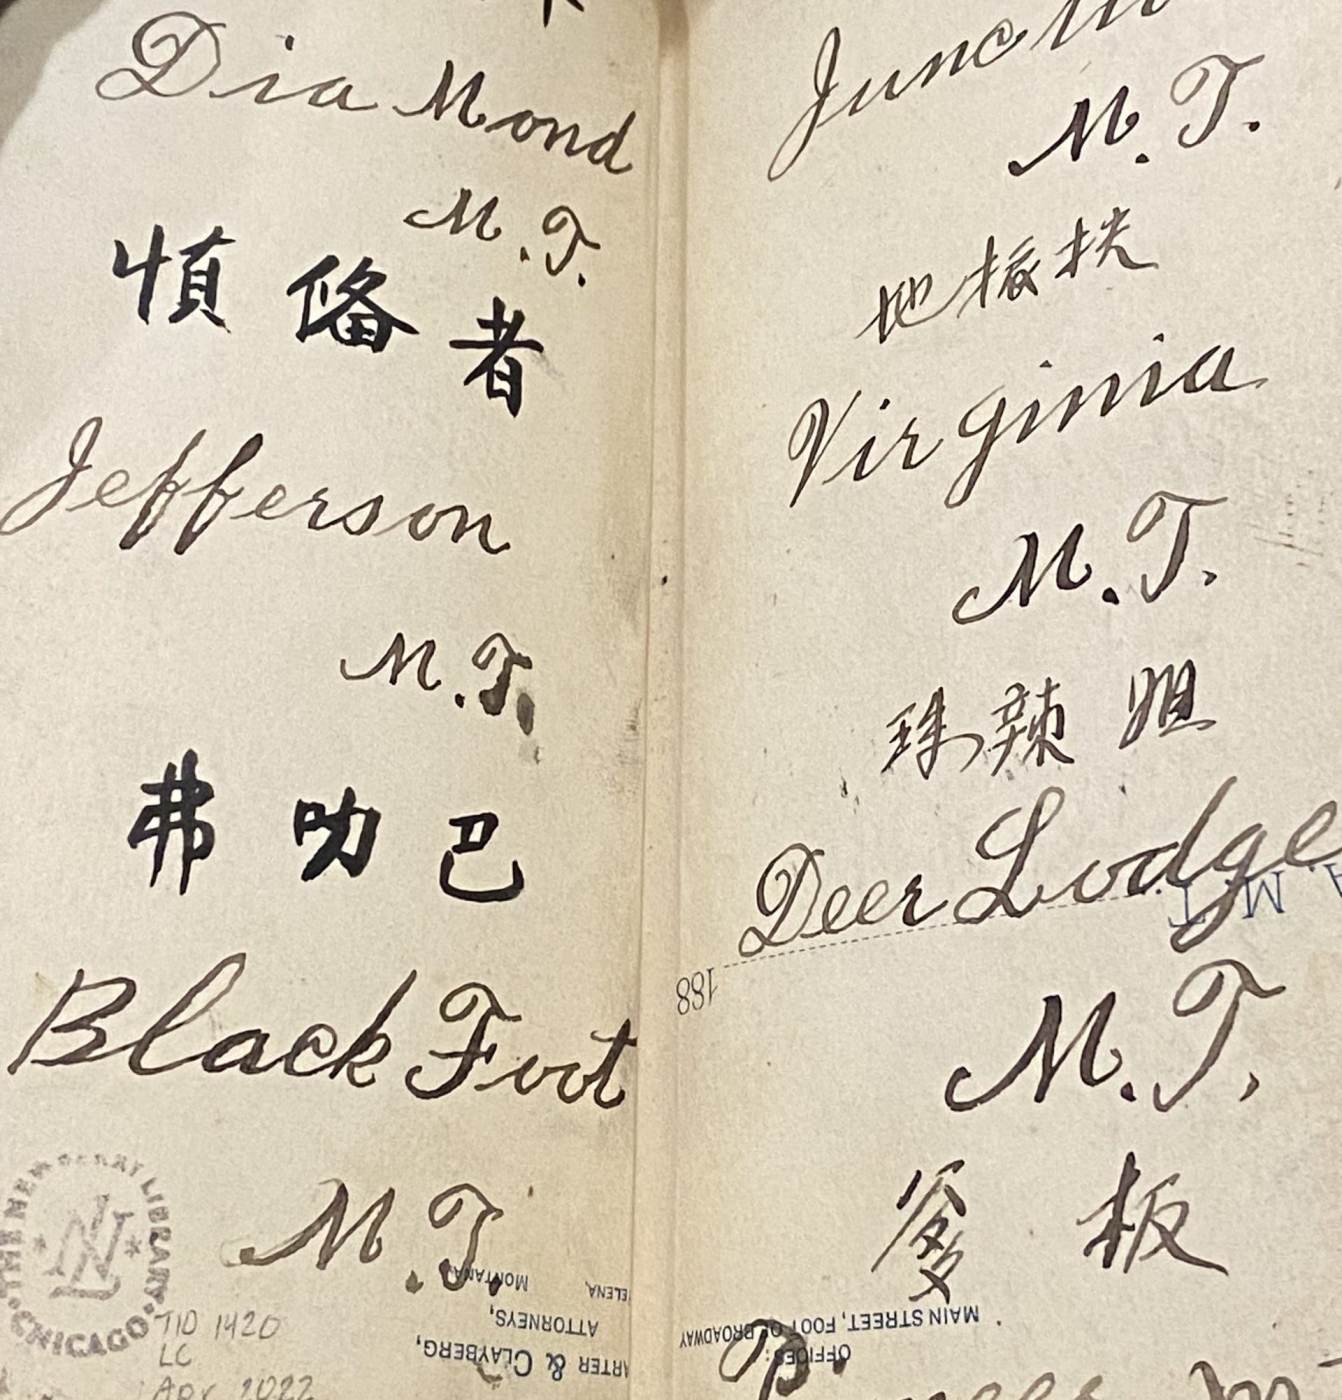 Dia Mond
M.T.
慎俻者
Jefferson
M.T.
弗叻巴
Black Foot
M.T.
THE NEWBERRY LIBRARY
CHICAGO
TID 1420
LC
Apr 2022
ARTER & CLAYBERG,
ATTORNEYS,
ELENA, MONTANA.
M.T.
地振扶
Virginia
M.T.
珠辣姐
Deer Lodge
M.T.
A, M.T.
188
爹板
OFFICES:
MAIN STREET, FOOT OF BROADWAY